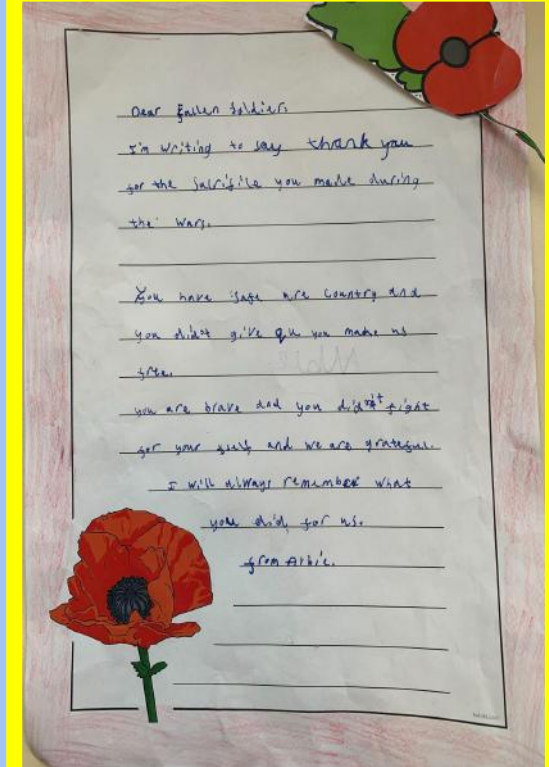 Dear Fallen Soldier,
I'm writing to say thank you
for the sacrifile you made during
the wars.
You have safe are country and
you didn't give qu you made us
free.
you are brave and you didn't fight
for your self and we are grateful.
I will always remember what
you did for us.
from Arbie.